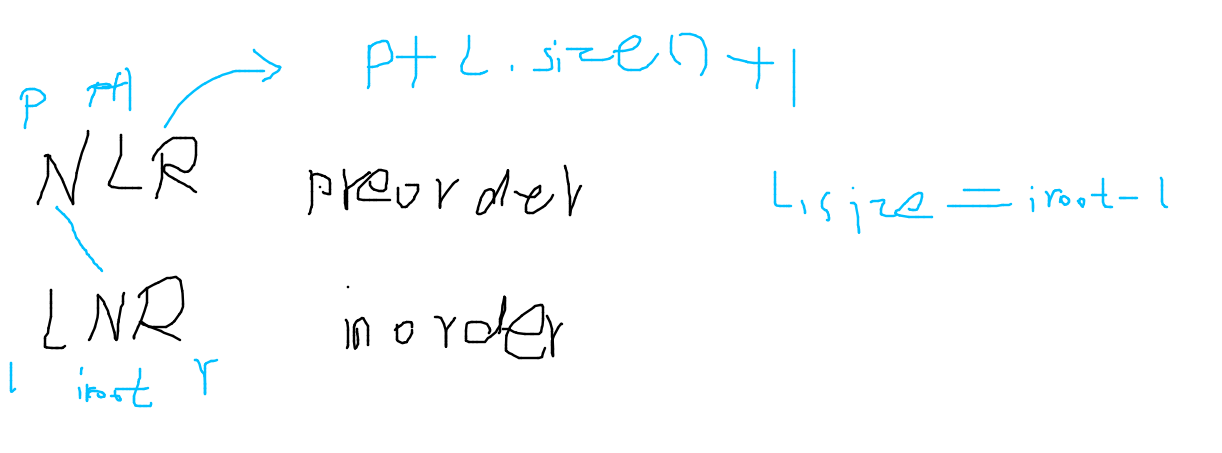 p+L.size()+1
p p+1
NLR preorder
L.size=iroot-l
LNR inorder
l iroot r